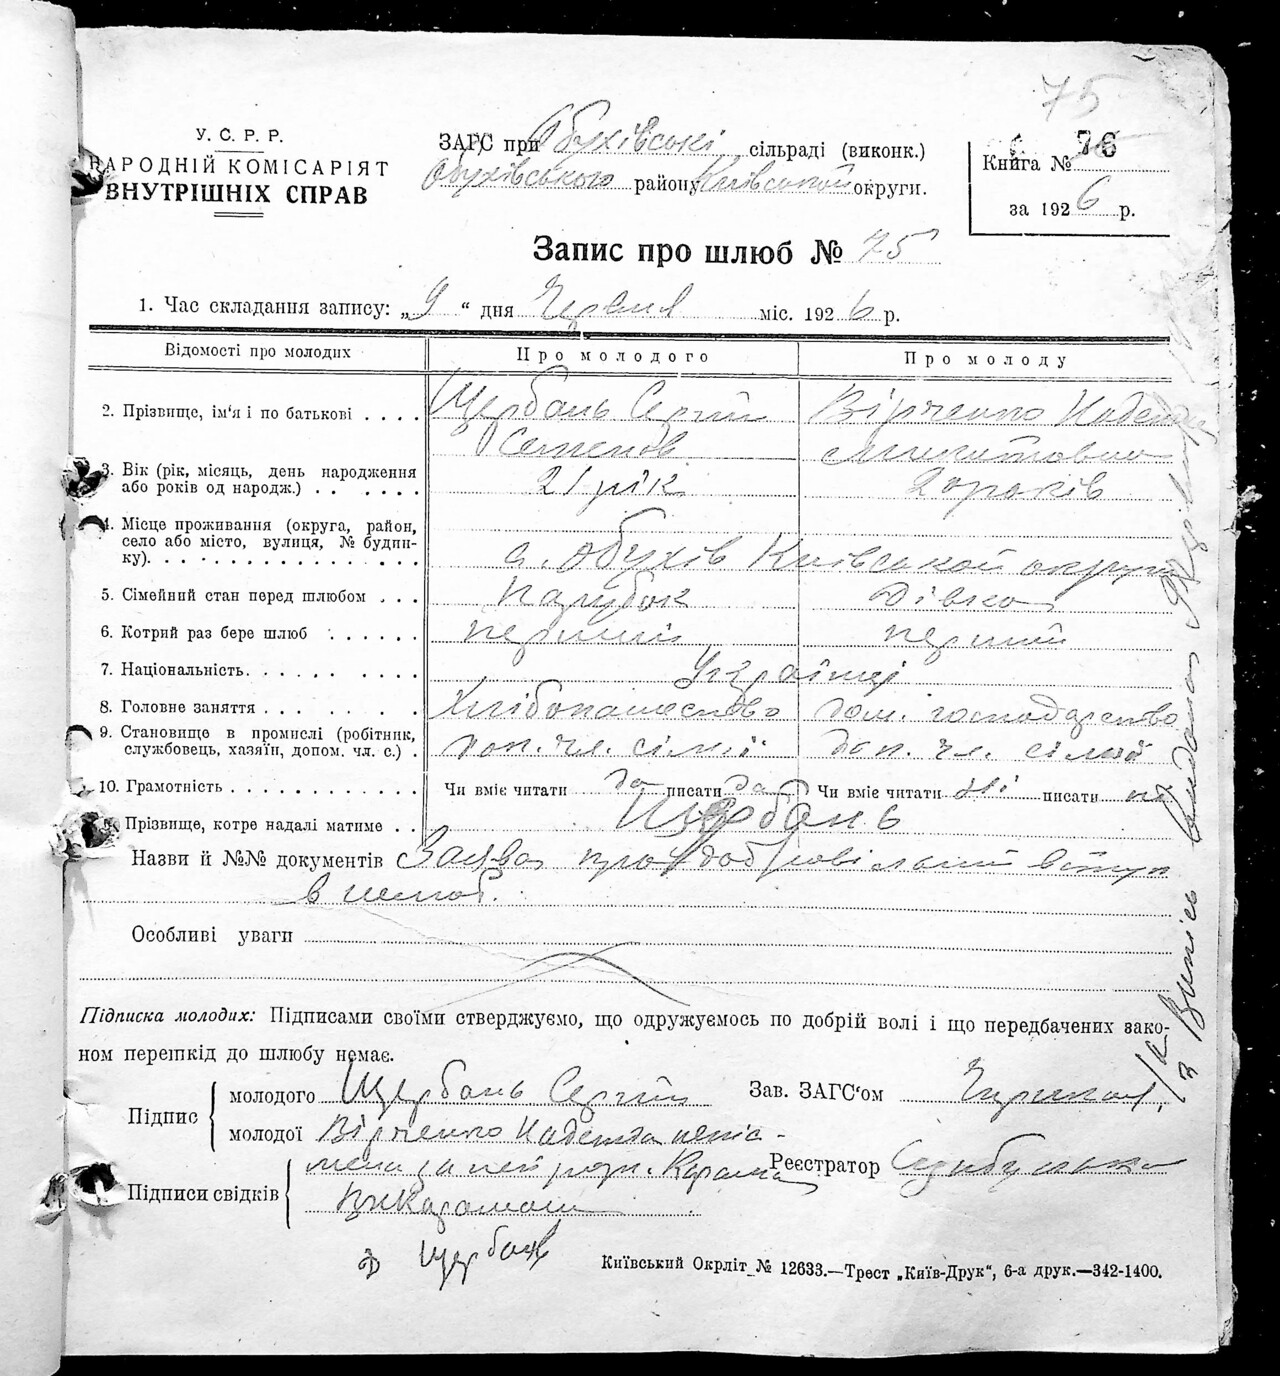 75
У. С. Р. Р.
НАРОДНІЙ КОМІСАРІЯТ
ВНУТРІШНІХ СПРАВ
ЗАГС при Обухівські сільраді (виконк.)
Обухівського району Київськой округи.
Книга № 76
за 1926 р.
Запис про шлюб № 75
1. Час складання запису: „9“ дня Червня міс. 1926 р.
Відомості про молодих Про молодого Про молоду
2. Прізвище, ім‘я і по батькові . . . . Щербань Сергій Вірченко Надежда
Семенов Микитовна
3. Вік (рік, місяць, день народження
або років од народж.) . . . . . . 21 рік 20 років
4. Місце проживання (округа, район,
село або місто, вулиця, № будин-
ку). . . . . . . . . . . . . . . с. Обухів Київськой округи
5. Сімейний стан перед шлюбом . . . Парубок Дівка
6. Котрий раз бере шлюб . . . . . . перший перший
7. Національність. . . . . . . . . Українці
8. Головне заняття . . . . . . . . Хлібопашество дом. господарство
9. Становище в промислі (робітник,
службовець, хазяїн, допом. чл. с.) . доп. чл. сімії доп. чл. сімії
10. Грамотність . . . . . . . . . . Чи вміє читати да писати да Чи вміє читати ні писати ні
Прізвище, котре надалі матиме . . Щербань
Назви й №№ документів Заява про добровільний вступ
в шлюб.
Особливі уваги
Підписка молодих: Підписами своїми стверджуємо, що одружуємось по добрій волі і що передбачених зако-
ном перешкід до шлюбу немає.
Підпис
молодого Щербань Сергій
Зав. ЗАГС‘ом
молодої Вірченко Надежда непис-
мена за неї розп.
Реєстратор
Підписи свідків
Щербань
Київський Окрліт № 12633.—Трест „Київ-Друк“, 6-а друк.—342-1400.
Випись